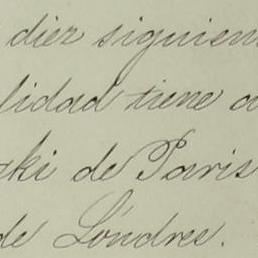 diez siguien
lidad tiene a
ski de Paris
de Londres.